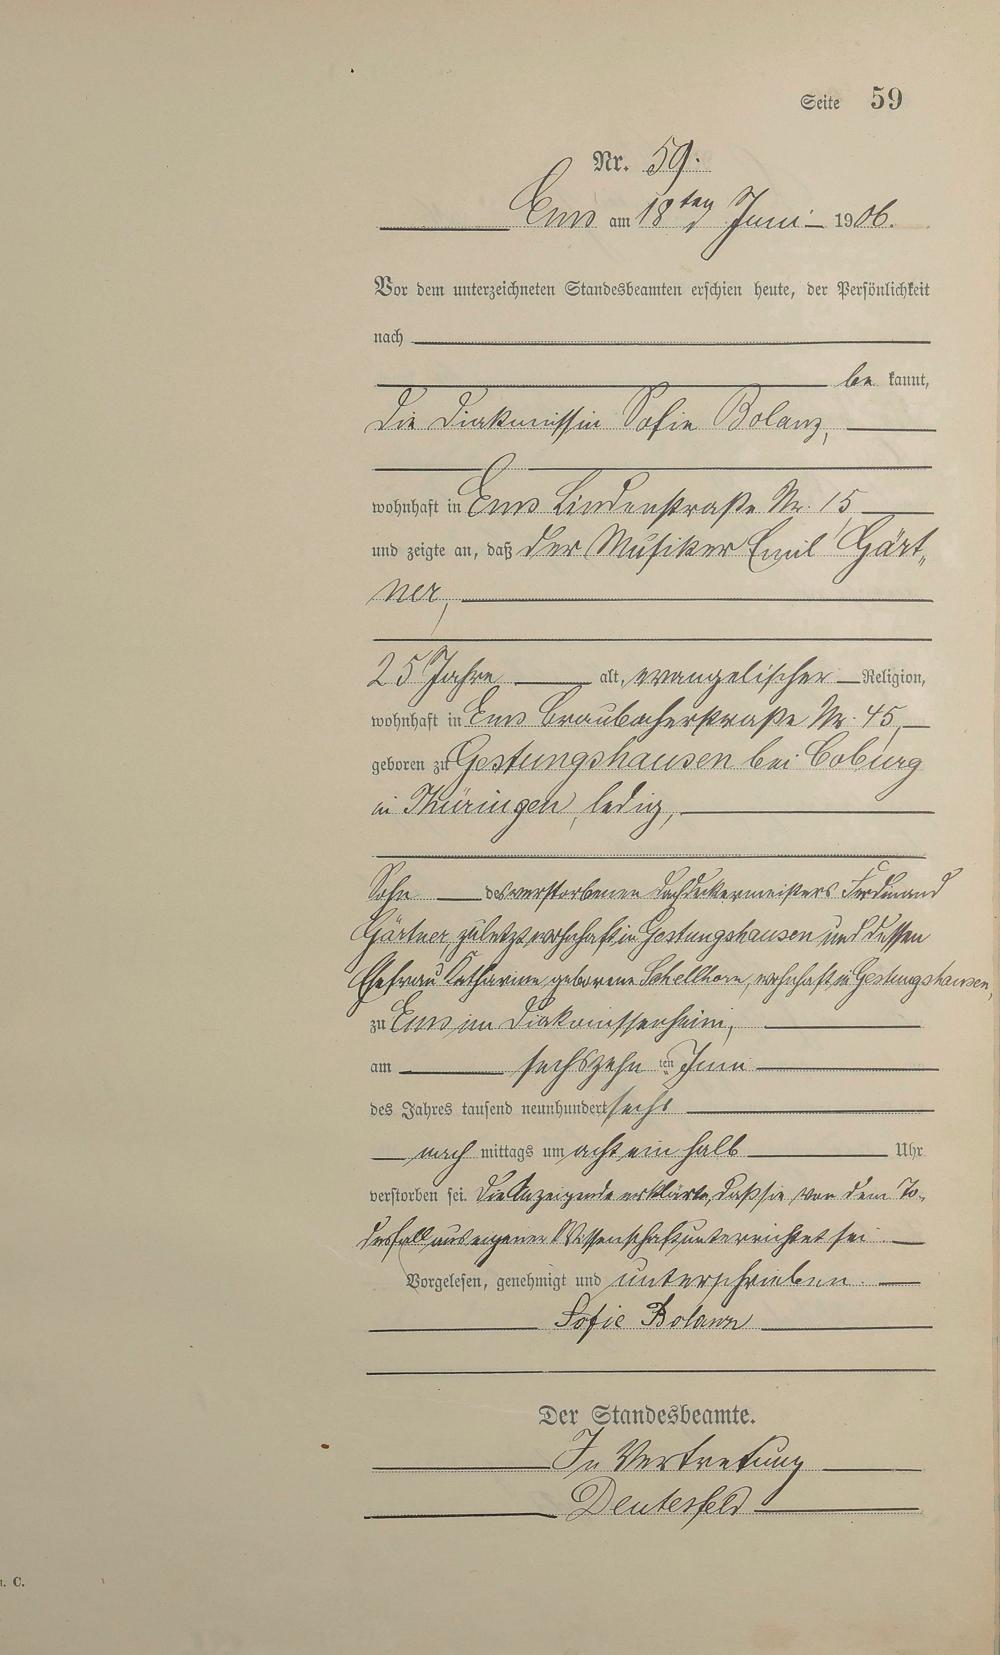 Seite 59
Nr. 59.
Ems am 18ten Juni 1906.
Vor dem unterzeichneten Standesbeamten erschien heute, der Persönlichkeit
nach
be kannt,
die Diakonissin Sofie Bolanz,
wohnhaft in Ems Lindenstraße Nr. 15
und zeigte an, daß der Musiker Emil Gärt„
ner,
25 Jahre alt, evangelischer Religion,
wohnhaft in Ems Braubacherstraße Nr. 45,
geboren zu Gestungshausen bei Coburg
in Thüringen, ledig,
Sohn des verstorbenen Dachdeckermeisters Ferdinand
Gärtner, zuletzt wohnhaft in Gestungshausen und dessen
Ehefrau Katharine, geborene Schellhorn, wohnhaft in Gestungshausen,
zu Ems im Diakonissenheim,
am sechszehn ten Juni
des Jahres tausend neunhundert sechs
nach mittags um acht ein halb Uhr
verstorben sei. Die Anzeigende erklärte, daß sie von dem To-
desfall aus eigener Wissenschaft unterrichtet sei.
Vorgelesen, genehmigt und unterschrieben.
Sofie Bolanz
Der Standesbeamte.
In Vertretung
Deutesfeld
. C.